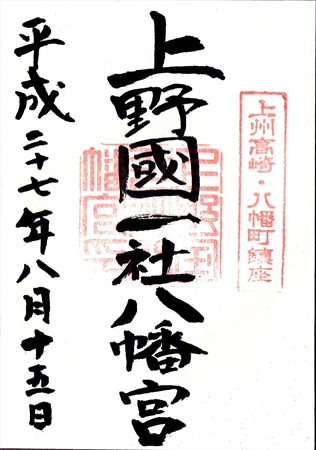 上州高崎・八幡町鎮座
上野國一社八幡宮
平成二十七年八月十五日